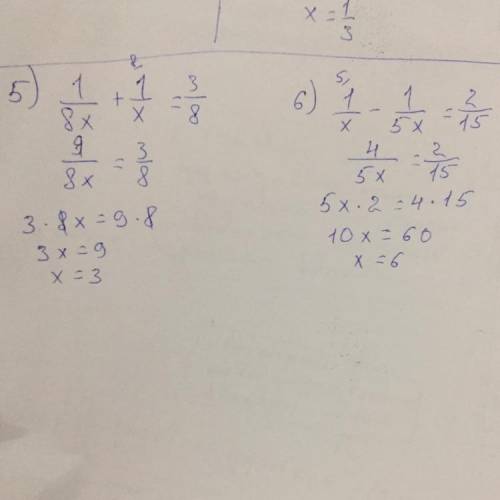 x = 1/3
5) 1/8x + 8 1/x = 3/8
9/8x = 3/8
3 · 8x = 9 · 8
3x = 9
x = 3
6) 5, 1/x - 1/5x = 2/15
4/5x = 2/15
5x · 2 = 4 · 15
10x = 60
x = 6